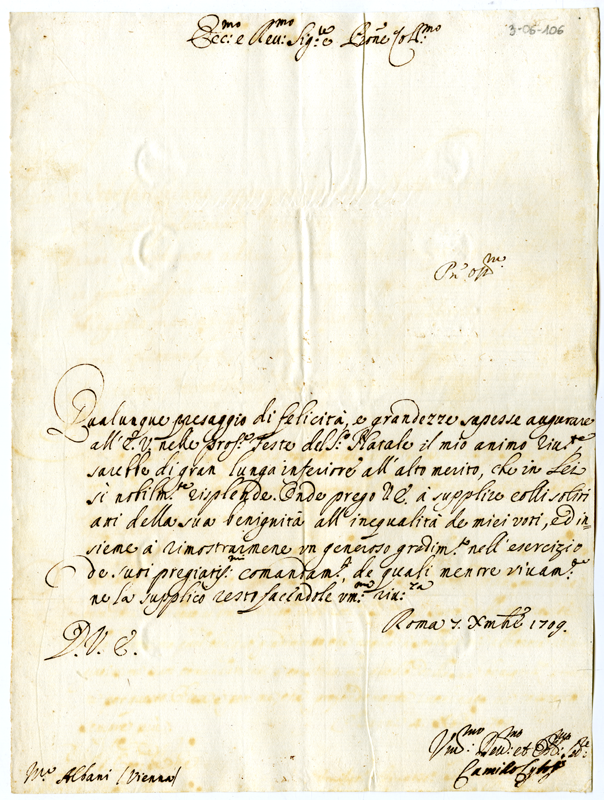 Ecc:mo e Reu:mo Sig:re e Pne Coll:mo
3-06-106
Pn̄e oss.mo
Qualunque presaggio di felicità, e grandezze sapesse augurare
all' E. V. nelle pros.e feste del S.o Natale il mio animo riu.te
sarebbe di gran lunga inferiore all' alto merito, che in Lei
sì nobilm.te risplende. Onde prego V. E. à supplire colli soliti
atti della sua benignità all' inegualità de miei voti, ed in-
sieme à rimostrarmene vn generoso gradim.to nell' esercizio
de suoi pregiatis.mi comandam.ti, de quali mentre viuam.te
ne la supplico resto facendole vm:ma riu:za
Roma 7. Xmbre 1709.
D. V. E.
M.r Albani (Vienna)
Vm:mo Deu:mo et
Camillo Cybo